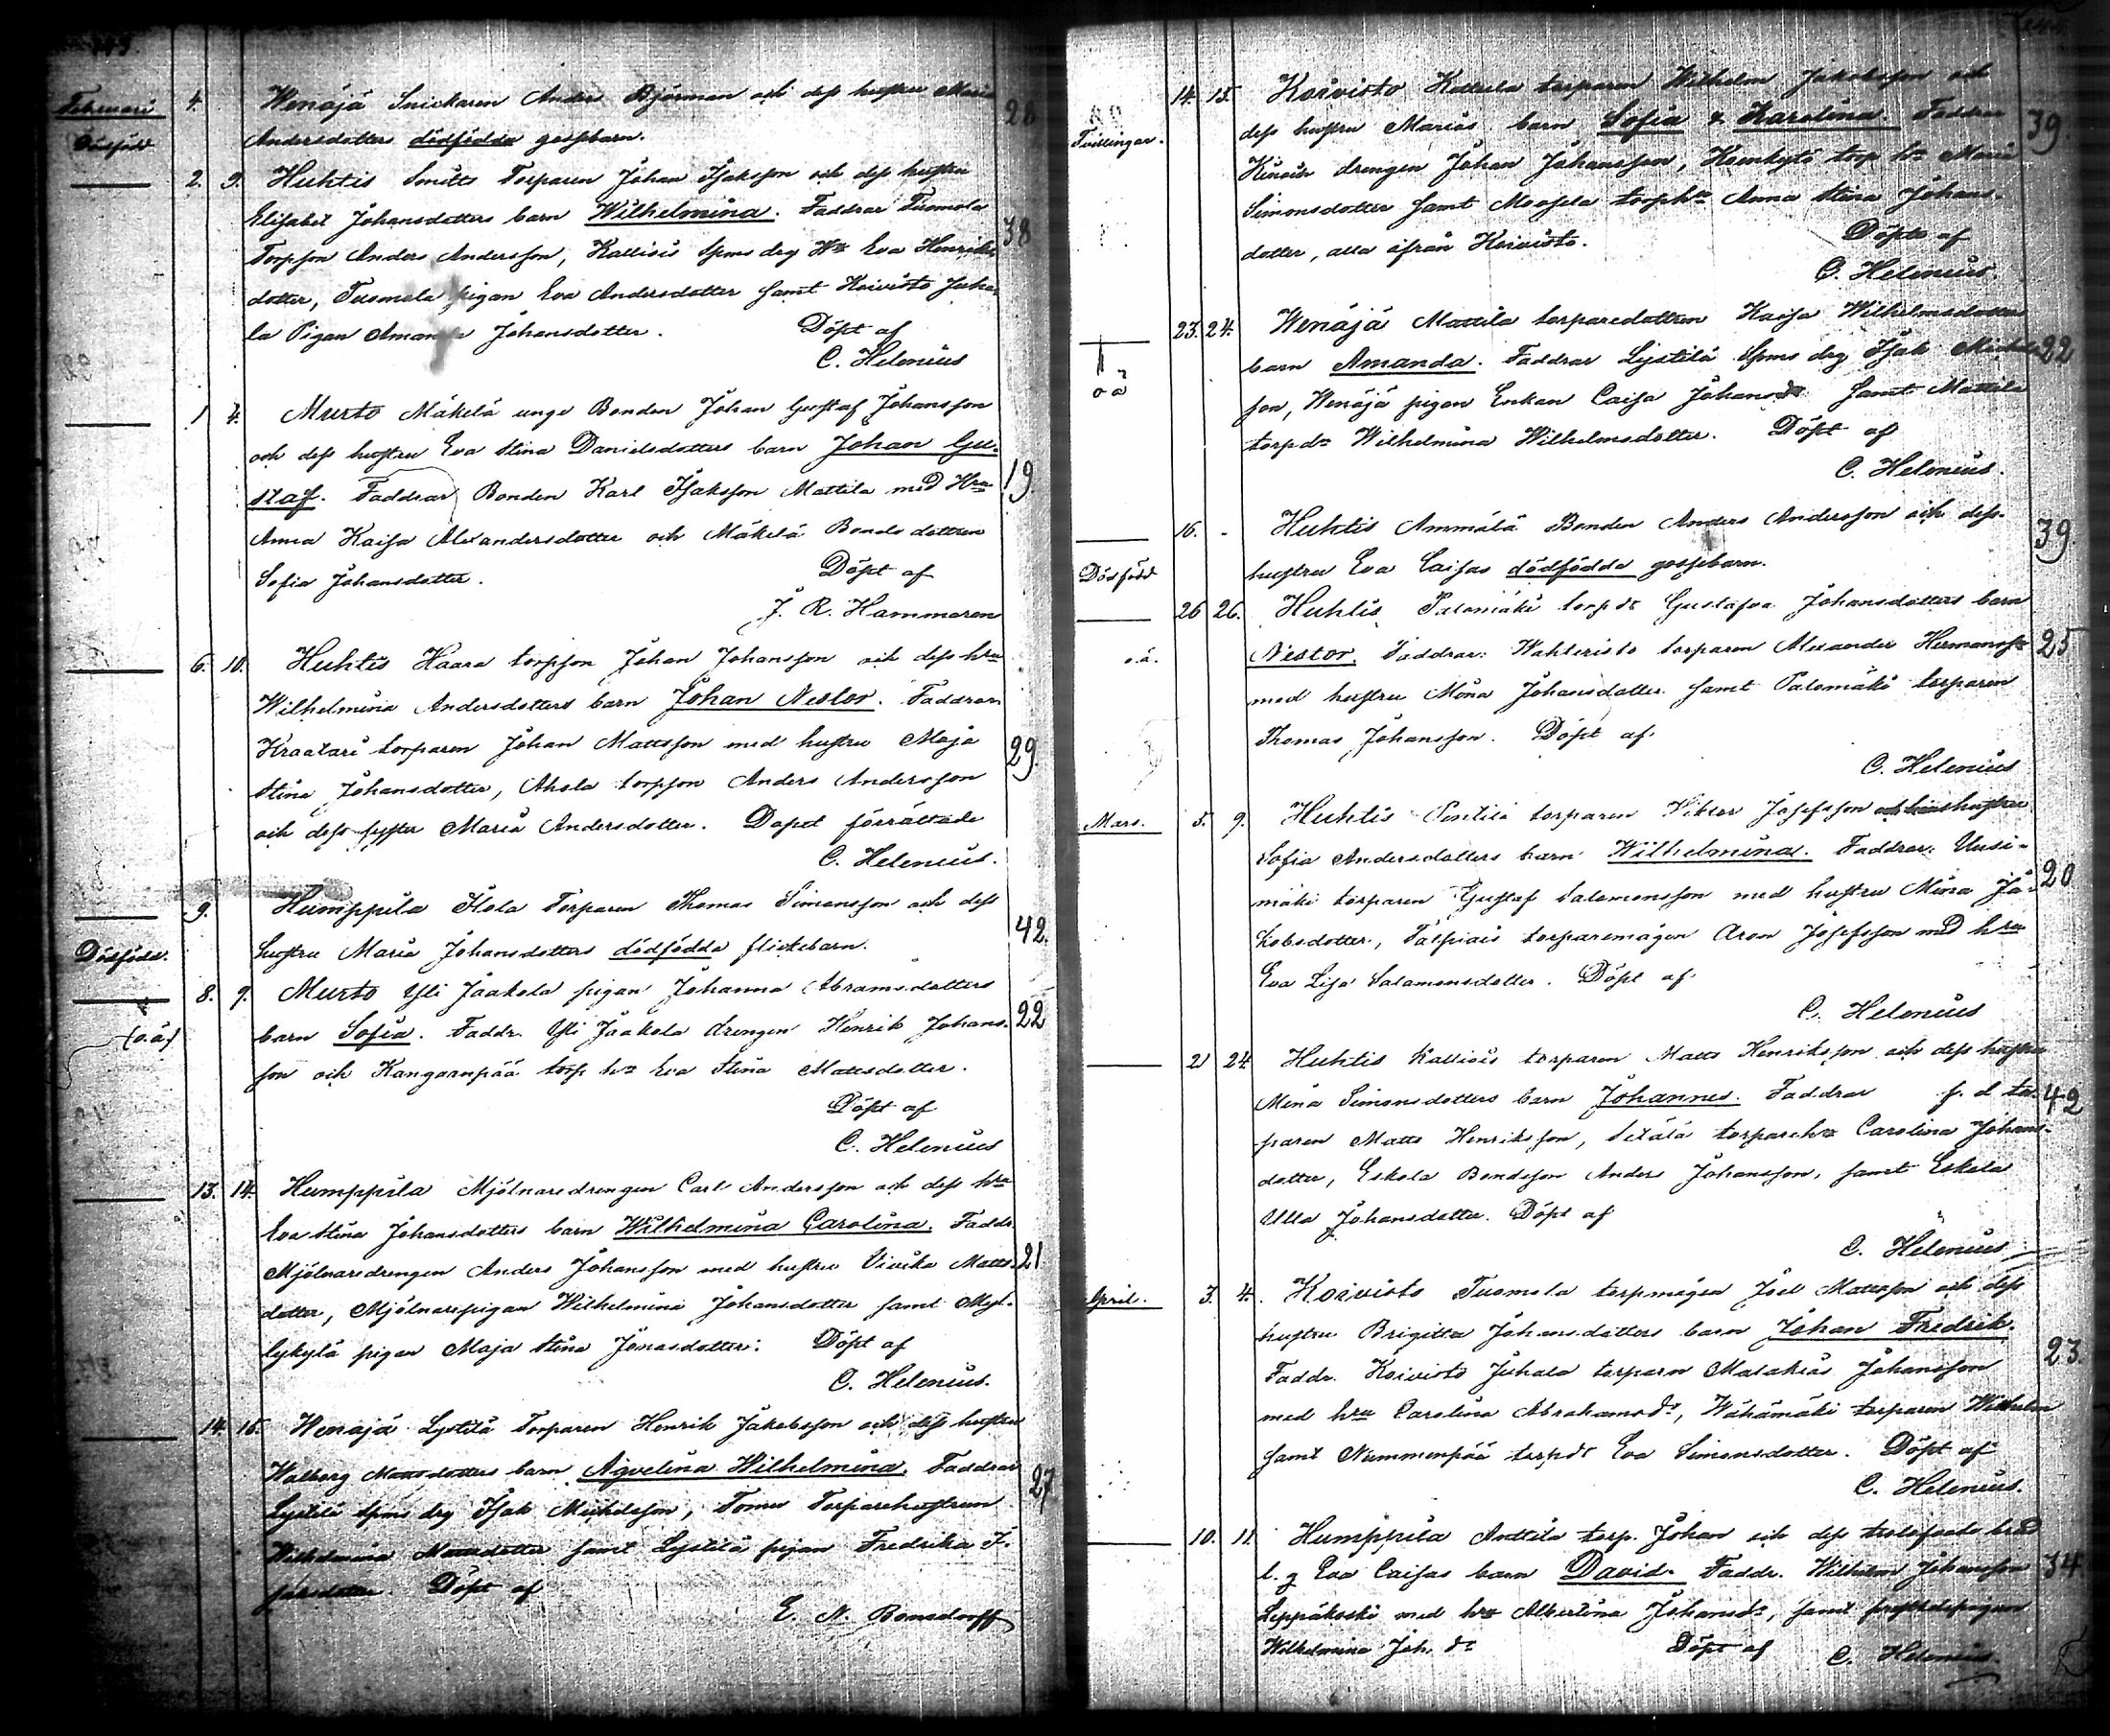 Februari 4. Wenäjä Snickaren Ander Björman och dess hustru Maria 28
Dödfödd Andersdotters dödfödda gossebarn.
2. 9. Huhtis Smitts Torparen Johan Isaksson och dess hustru
Elisabet Johansdotters barn Wilhelmina. Faddrar Tuomola
Torpson Anders Andersson, Kalliois Spms drg Hu Eva Henriks 38
dotter, Tuomola pigan Eva Andersdotter samt Koivisto Juha
la Pigan Amanda Johansdotter. Döpt af
C. Helenius
1 4. Murto Mäkelä unge Bonden Johan Gustaf Johansson
och dess hustru Eva Stina Danielsdotters barn Johan Gu-
staf. Faddrar Bonden Karl Isaksson Mattila med Hru 19.
Anna Kaisa Alexandersdotter och Mäkelä Bonde dottren
Sofia Johansdotter. Döpt af
J. R. Hammaren
6. 10. Huhtis Haara torpson Johan Johansson och dess hru
Wilhelmina Andersdotters barn Johan Nestor. Faddrar
Kraatari torparen Johan Mattsson med hustru Maja 29.
Stina Johansdotter, Ahola torpson Anders Andersson
och dess syster Maria Andersdotter. Dopet förrättade
C. Helenius.
9. Humppila Torparen Thomas Simonsson och dess 42.
Dödfödd. hustru Maria Johansdotters dödfödda flickebarn.
8. 9. Murto Yli Jaakola pigan Johanna Abramsdotters
(o.ä.) barn Sofia. Faddr. Yli Jaakola drengen Henrik Johans- 22
son och Kangarnpää torp hu Eva Stina Mattsdotter.
Döpt af
C. Helenius
13. 14. Humppila Mjölnaredrengen Carl Andersson och dess hru
Eva Stina Johansdotters barn Wilhelmina Carolina. Faddr.
Mjölnaredrengen Anders Johansson med hustru Vivika Matts- 21
dotter, Mjölnarepigan Wilhelmina Johansdotter samt Myl-
lykylä pigan Maja Stina Jonasdotter. Döpt af
C. Helenius.
14. 15. Wenäjä Lystilä Torparen Henrik Jakobsson och dess hustru
Walborg Mattsdotters barn Agvelina Wilhelmina. Faddrar 27
Lystilä Spms drg Isak Michelsson, Torparehustrun
Wilhelmina Mattsdotter samt Lystilä pigan Fredrika
Döpt af
E. N. Bonsdorff
14. 15. Koivisto Kattula torparen Wilhelm Jakobsson och
Tvillingar. dess hustru Marias barn Sofia & Karolina. Faddrar 39
drengen Johan Johansson, torp hu Maria
Simonsdotter samt torphu Anna Stina Johans-
dotter, alla ifrån Koivisto. Döpte af
C. Helenius
23. 24. Wenäjä Mattila torparedottren Kaisa Wilhelmsdotters
oä barn Amanda. Faddrar Lystilä Spms drg Isak Michels 22
son, Wenäjä pigan Enkan Caisa Johansdr samt Mattila
torpdr Wilhelmina Wilhelmsdotter. Döpt af
C. Helenius.
16. - Huhtis Ammälä Bonden Anders Andersson och dess 39.
Dödfödd hustru Eva Caisas dödfödda gossebarn.
26 26. Huhtis Palomäki torpdr Gustafva Johansdotters barn
o.ä. Nestor. Faddrar: Wahteristo torparen Alexander Hermanss 25
med hustru Mina Johansdotter samt Palomäki torparen
Thomas Johansson. Döpt af
C. Helenius
Mars. 5. 9. Huhtis Pentilä torparen Viktor Josefsson och hans hustru
Sofia Andersdotters barn Wilhelmina. Faddrar: Uusi-
mäki torparen Gustaf Salomonsson med hustru Mina Ja- 20
kobsdotter, torparemågen Aron Josefsson med hru
Eva Lisa Salomonsdotter. Döpt af
C. Helenius
21 24 Huhtis Kalliois torparen Matts Henriksson och dess hustru
Mina Simonsdotters barn Johannes. Faddrar f. d. tor- 42
paren Matts Henriksson, Setälä torparehu Carolina Johans-
dotter, Eskola Bondeson Anders Johansson, samt Eskola
Ulla Johansdotter. Döpt af
C. Helenius
April. 3. 4. Koivisto Tuomola torpmågen Joel Mattsson och dess
hustru Brigitta Johansdotters barn Johan Fredrik. 23.
Faddr. Koivisto Juhala torparn Malakias Johansson
med hru Carolina Abrahamsdr, Wähämäki torparen Wilhelm
samt Nummenpää torpdr Eva Simonsdotter. Döpt af
C. Helenius.
10. 11 Humppila Anttila torp. Johan och dess trolofvade
Eva Caisas barn David. Faddr. Wilhelm Johansson 34
Leppäkoski med hru Albertina Johansdr, samt
Wilhelmina Joh. dr Döpt af C. Helenius.